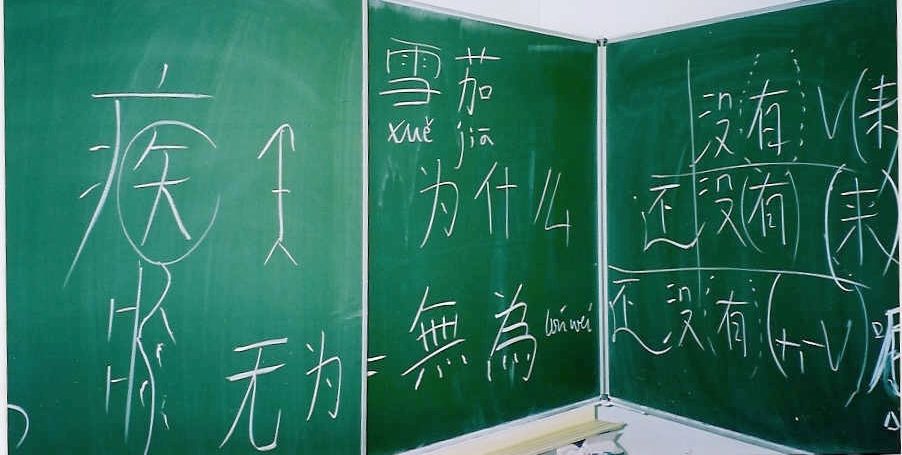 疾
无为
雪茄
xuě jiā
为什么
= 無為
没有 V (来
还没(有) (来)
还没有 (+ V)